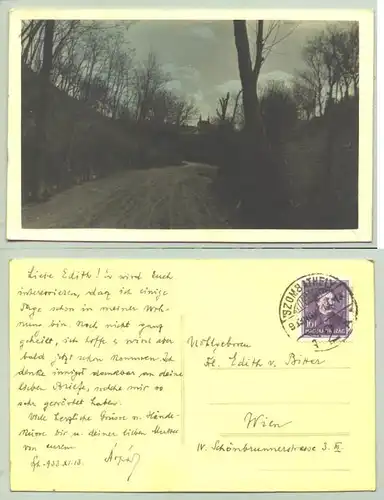 Liebe Edith! Es wird Euch
interessieren, dag ich einige
Tage schon in meiner Woh-
nung bin. Noch nicht ganz
geheilt, ich hoffe es wird aber
bald jetzt schon kommen. Ich
denke innigst dankbar an deine
lieben Briefe, welche mir so
sehr gewartet haben.
Viele herzliche Grüsse u. Hände-
küsse dir u. deiner lieben Mutter
von eurem
933.XI.13. Árpád
SZOMBATHELY
MAGYARORSZÁG
Wohlgeboren
Frl. Edith v. Bitter
Wien
IV. Schönbrunnerstrasse 3. III.